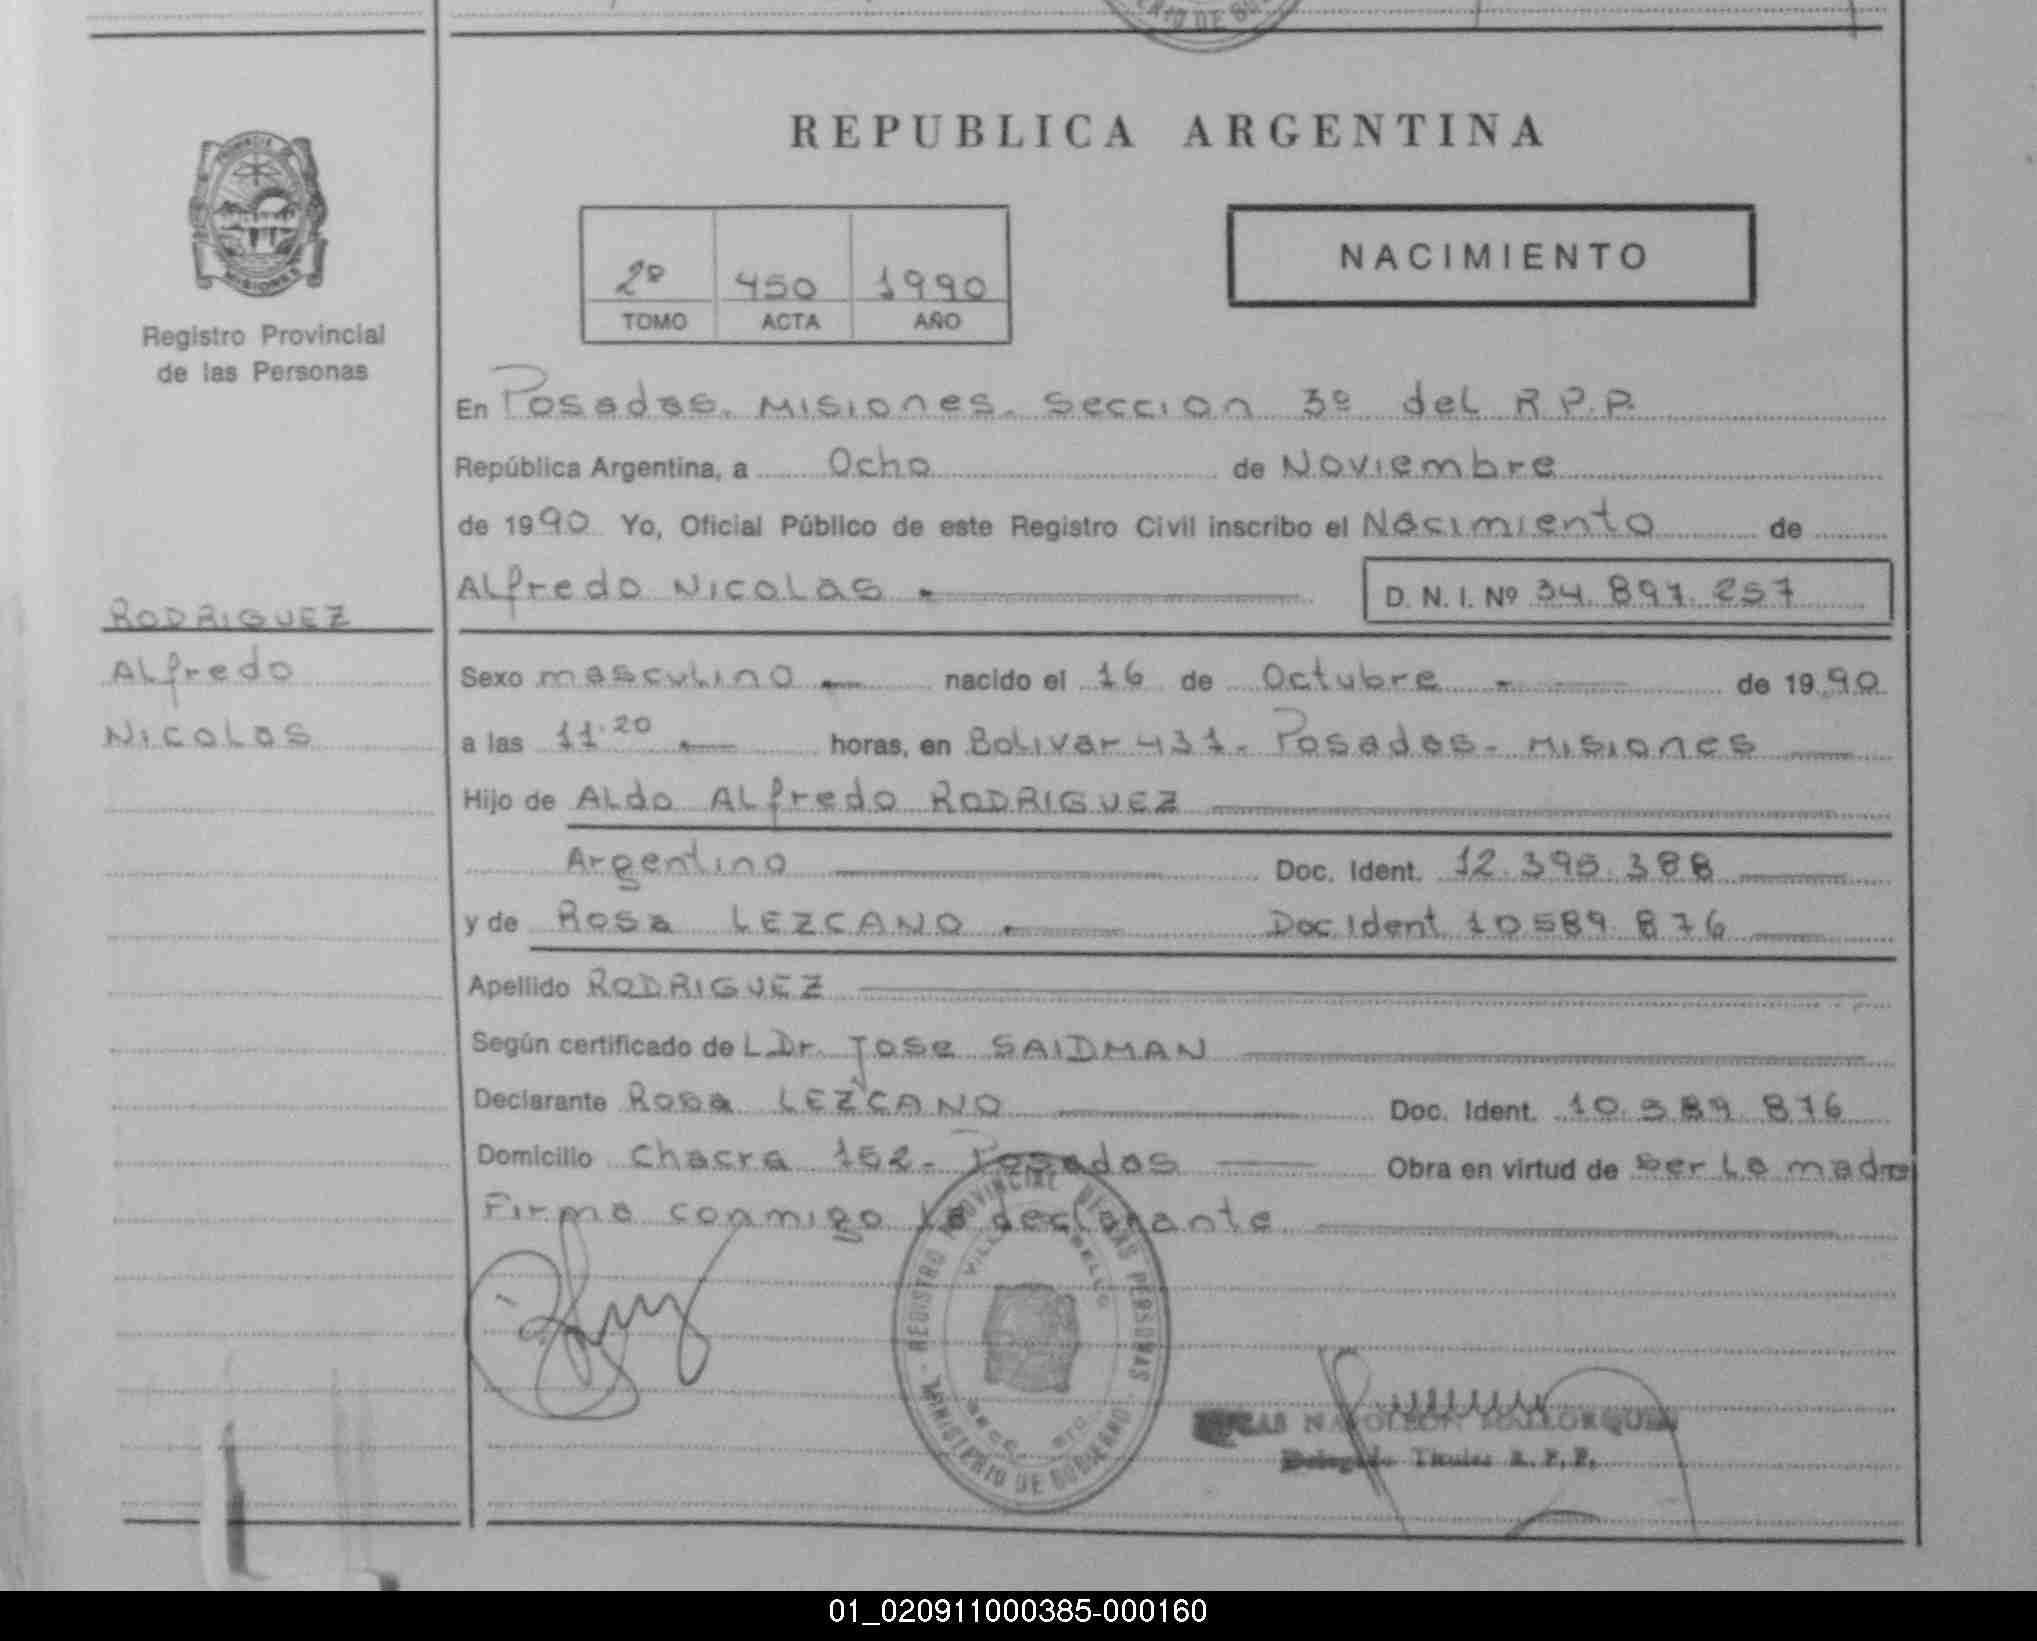 REPUBLICA ARGENTINA
PROVINCIA DE
MISIONES
Registro Provincial
de las Personas
2º 450 1990
TOMO ACTA AÑO
NACIMIENTO
En Posadas. Misiones. Seccion 3º del R.P.P.
República Argentina, a Ocho de Noviembre
de 1990 Yo, Oficial Público de este Registro Civil inscribo el Nacimiento de
Alfredo Nicolas D. N. I. Nº 34.897.257
RODRIGUEZ
Alfredo
Nicolas
Sexo masculino nacido el 16 de Octubre de 1990
a las 11.20 horas, en Bolivar 431. Posadas - Misiones
Hijo de Aldo Alfredo RODRIGUEZ
Argentino Doc. Ident. 12.395.388
y de Rosa LEZCANO Doc Ident 10589.876
Apellido RODRIGUEZ
Según certificado de L Dr. Jose SAIDMAN
Declarante Rosa LEZCANO Doc. Ident. 10.589.876
Domicilio Chacra 152 - Posadas Obra en virtud de ser la madre
Firma conmigo la declarante
REGISTRO PROVINCIAL DE LAS PERSONAS
MINISTERIO DE GOBIERNO
NAPOLEON
Delegado Titular R. P. P.
01_020911000385-000160